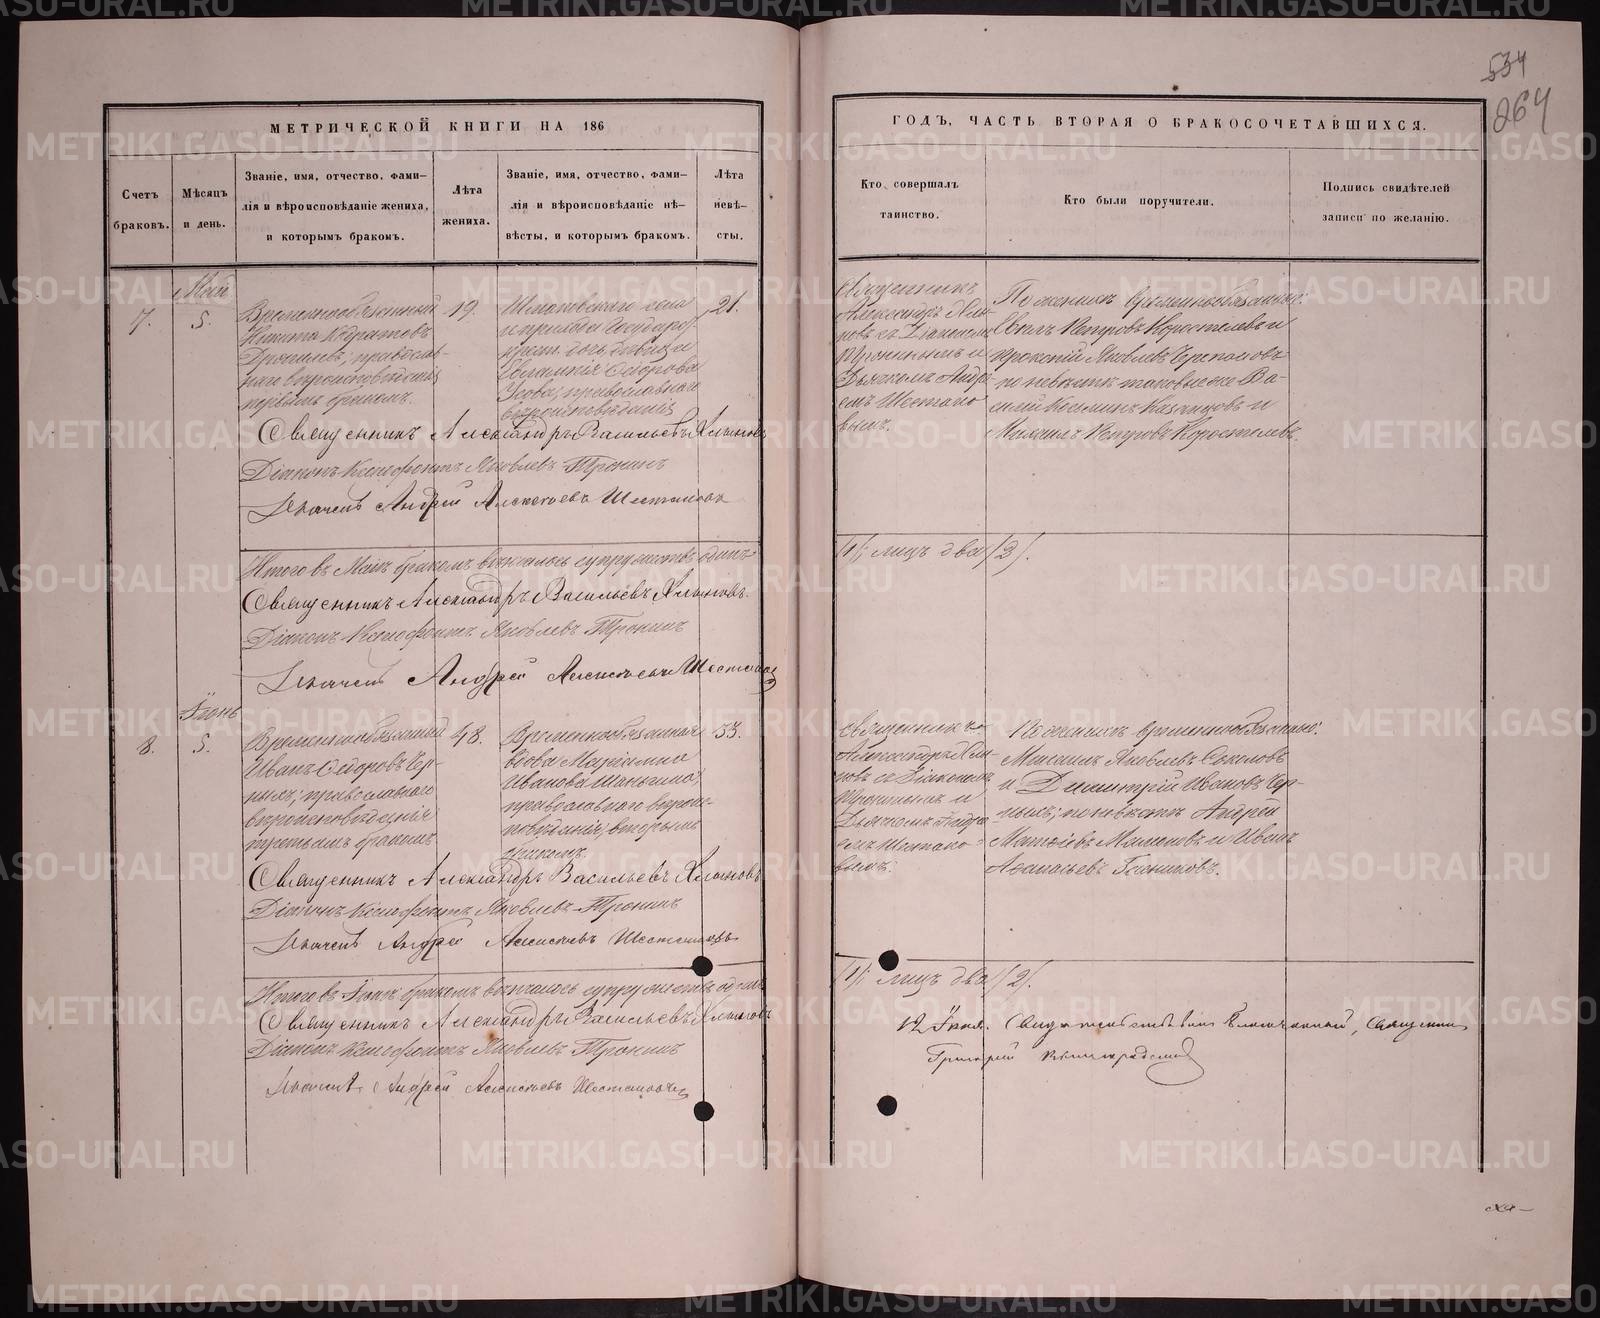 534
264
МЕТРИЧЕСКОЙ КНИГИ НА 186
ГОДЪ, ЧАСТЬ ВТОРАЯ О БРАКОСОЧЕТАВШИХСЯ.
Счетъ браковъ.
Мѣсяцъ и день.
Званіе, имя, отчество, фами-
лія и вѣроисповѣданіе жениха,
и которымъ бракомъ.
Лѣта
жениха.
Званіе, имя, отчество, фами-
лія и вѣроисповѣданіе не-
вѣсты, и которымъ бракомъ.
Лѣта
невѣ-
сты.
Кто совершалъ
таинство.
Кто были поручители.
Подпись свидѣтелей
записи по желанію.
Май
7.
5.
Временнообязанный
Никита
православ-
наго вѣроисповѣданія
первымъ бракомъ.
19.
села
и прихода Государс.
крест. дочь девица
православнаго
вѣроисповѣданія
21.
Священникъ
Александръ Хлы-
новъ съ Діакономъ
Трониным и
Дьячкомъ Андре-
емъ Шестако
вымъ.
По женихѣ временнообязан:
Петровъ Коростелевъ и
Яковлевъ Черепановъ
по невѣстѣ таковые же Ва-
силій Казанцовъ и
Михаилъ Петровъ Коростелевъ.
Священникъ Александръ Васильевъ Хлыновъ
Діаконъ Ксенофонтъ Яковлевъ Тронинъ
Дьячекъ Андрей Алексѣевъ Шестаковъ
Итого въ Маѣ бракомъ вѣнчалось супружествъ одинъ
/1/; лицъ два /2/.
Священникъ Александръ Васильевъ Хлыновъ.
Діаконъ Ксенофонтъ Яковлевъ Тронинъ
Дьячекъ Андрей Алексѣевъ Шестаковъ
Іюнь
8.
5.
Временнообязанный
Иванъ Ѳедоровъ Чер-
ныхъ; православнаго
вѣроисповѣданія
третьимъ бракомъ.
48.
Временнообязанная
вдова
Иванова
православнаго вѣроис-
повѣданія, вторымъ
бракомъ.
53.
Священникъ
Александръ Хлы-
новъ съ Діакономъ
Тронинымъ и
Дьячкомъ Андре-
емъ Шестако-
вымъ.
По женихѣ временнообязано:
Михаилъ Яковлевъ Соколовъ
и Димитрій Ивановъ Чер-
ныхъ; по невѣстѣ Андрей
и Иванъ
Аѳанасьевъ
Священникъ Александръ Васильевъ Хлыновъ
Діаконъ Ксенофонтъ Яковлевъ Тронинъ
Дьячекъ Андрей Алексѣевъ Шестаковъ
Итого въ Іюнѣ бракомъ вѣнчалось супружествъ одинъ
/1/; лицъ два /2/.
Священникъ Александръ Васильевъ Хлыновъ
Діаконъ Ксенофонтъ Яковлевъ Тронинъ
Дьячекъ Андрей Алексѣевъ Шестаковъ
12 Іюня. Свидѣтельствовалъ Благочинный, Священникъ
Григорій
METRIKI.GASO-URAL.RU